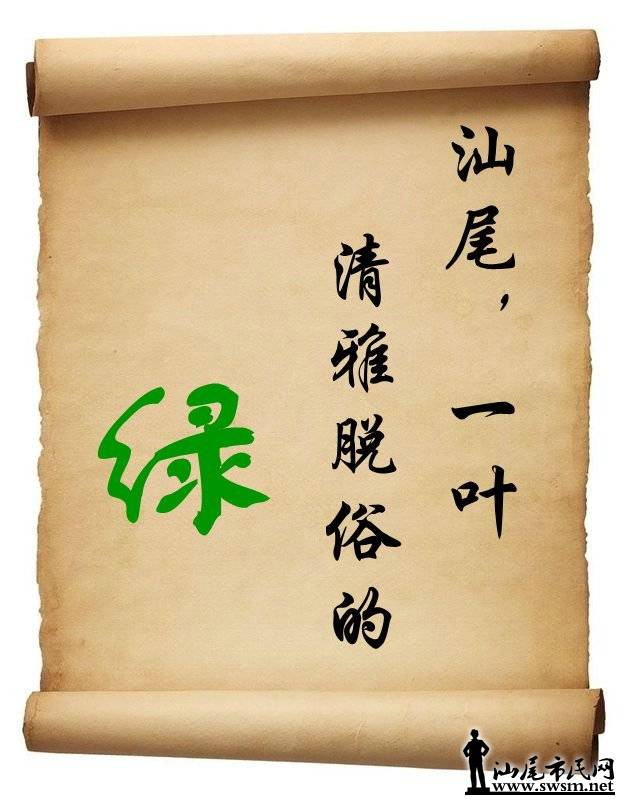 汕尾，一叶
清雅脱俗的
绿
汕尾市民网
www.swsm.net